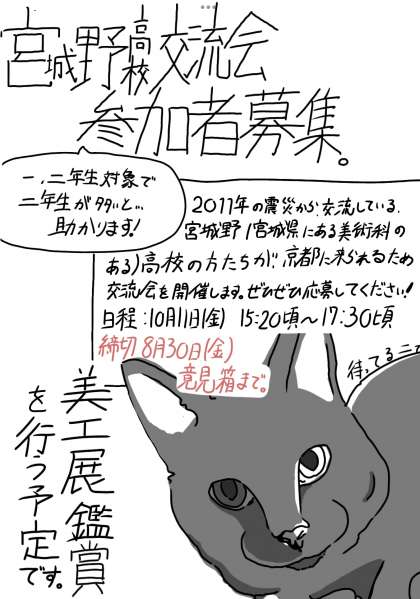 宮城野高校交流会
参加者募集。
一、二年生対象で
二年生が多いと…
助かります!
2011年の震災から交流している、
宮城野(宮城県にある美術科の
ある)高校の方たちが、京都に来られるため
交流会を開催します。ぜひぜひ応募してください!
日程:10月11日(金) 15:20頃〜17:30頃
締切 8月30日(金)
意見箱まで。
待ってるニャ
美工展鑑賞
を行う予定です。